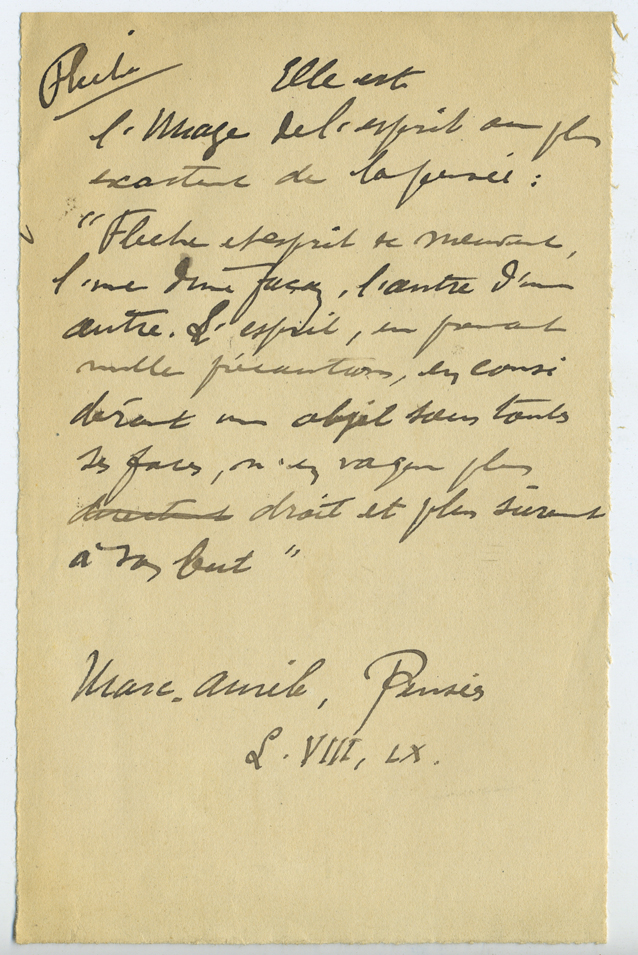 Flèche
Elle est
l'image de l'esprit ou plus
exactement de la pensée :
"Flèche et esprit se meuvent,
l'une d'une façon, l'autre d'une
autre. L'esprit, en prenant
mille précautions, en consi
dérant un objet sous toutes
ses faces, n'en vague plus
directement droit et plus sûrement
à son but"
Marc-Aurèle, Pensées
L. VIII, LX.